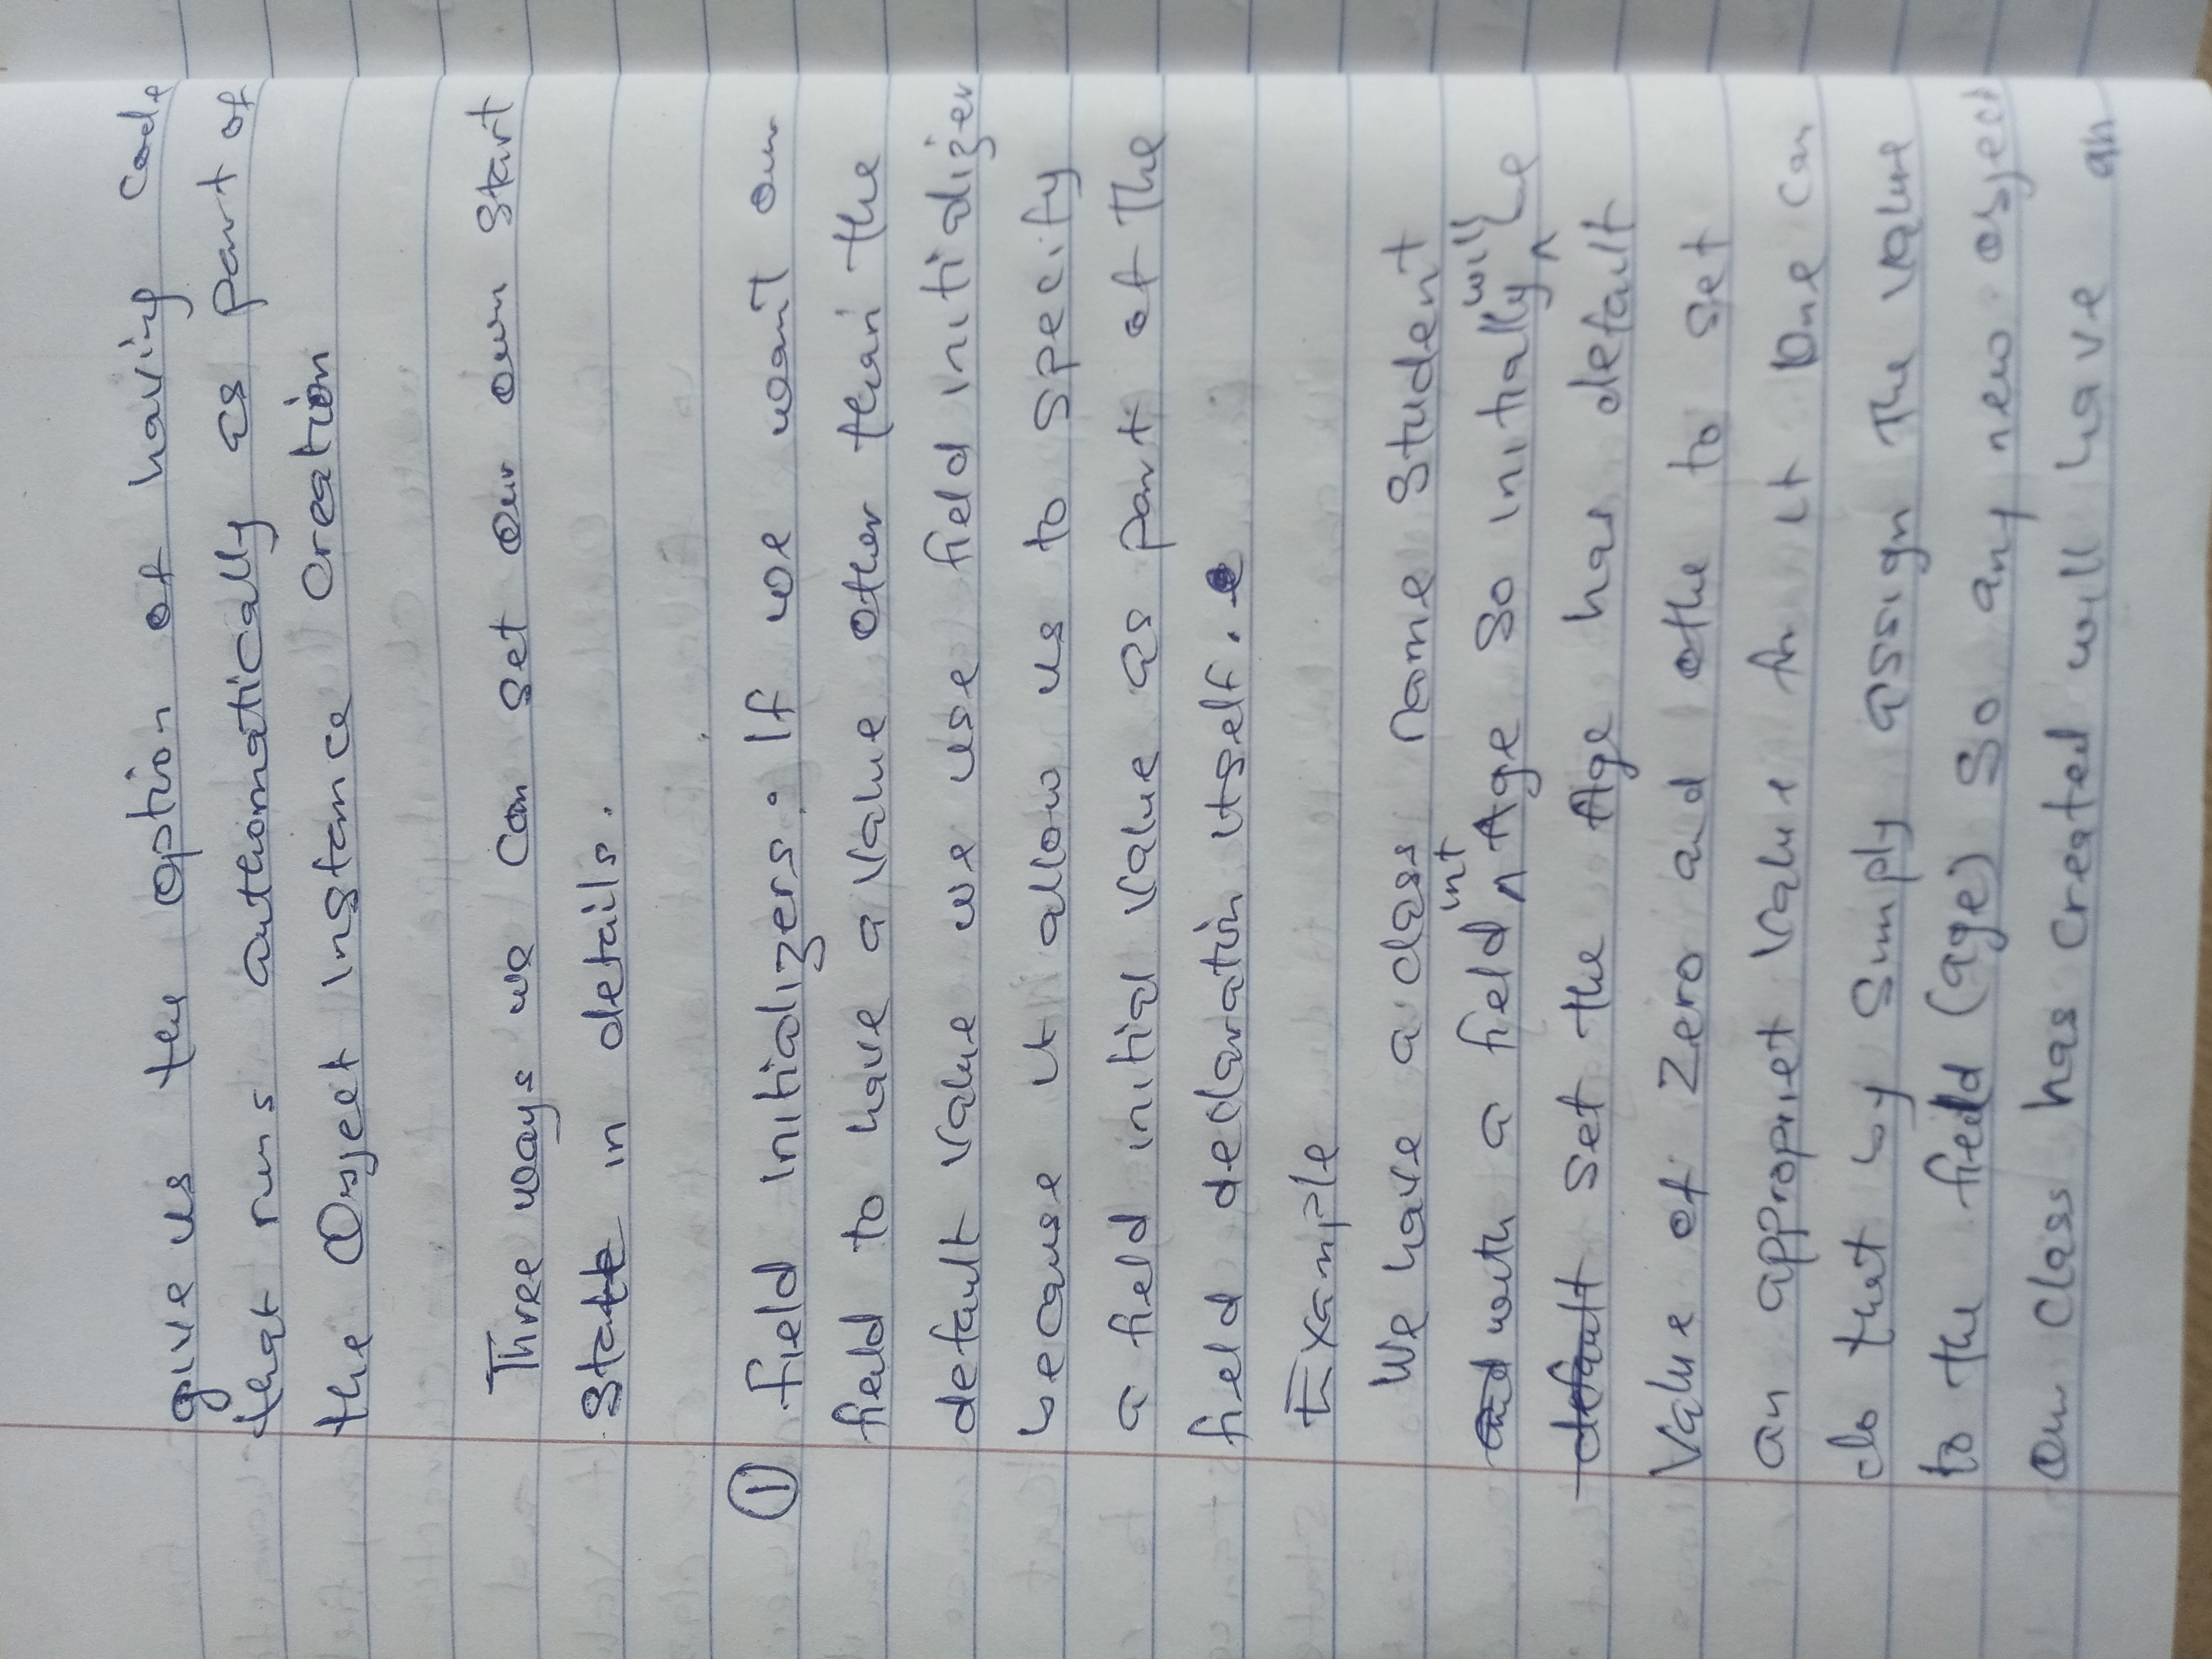 give us the option of having code
that runs authomatically as part of
the Object Instance Creation
Three ways we can set our own start
State in details.
① field initializers: If we want our
field to have a value other than the
default value we use field initializer
because it allow us to specify
a field initial value as part of the
field declaration itself.
Example
We have a class name Student
and with a field int Age so initially will be
default set the Age has default
Value of Zero and othe to set
an appropriet value for it one can
do that by simply assign the value
to the field (age) So any new object
our class has created will have an